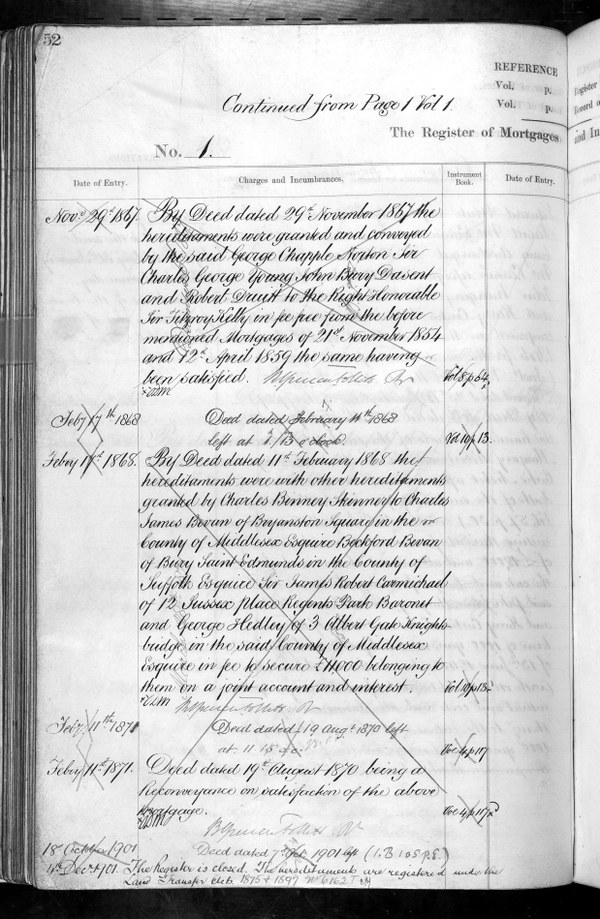 52
REFERENCE
Vol. p.
Vol. p.
Continued from Page 1 Vol 1.
The Register of Mortgages
No. 1.
Date of Entry.
Charges and Incumbrances.
Instrument Book.
Date of Entry.
Novr 29th 1867.
By Deed dated 29th November 1867 the
hereditaments were granted and conveyed
by the said George Chapple Norton Sir
Charles George Young John Bury Dasent
and Robert Druitt to the Right Honorable
Sir Fitzroy Kelly in fee free from the before
mentioned Mortgages of 21st November 1854
and 12th April 1859 the same having
been satisfied.
Vol 8 p 64
Feby 17th 1868
Deed dated February 11th 1868
left at o'clock.
Vol 10 p 13.
Febry 17th 1868.
By Deed dated 11th February 1868 the
hereditaments were with other hereditaments
granted by Charles Binney Skinner to Charles
James Bevan of Bryanston Square in the
County of Middlesex Esquire Beckford Bevan
of Bury Saint Edmunds in the County of
Suffolk Esquire Sir James Robert Carmichael
of 12 Sussex Place Regents Park Baronet
and George Hedley of 3 Albert Gate Knights-
bridge in the said County of Middlesex
Esquire in fee to secure £11000 belonging to
them on a joint account and interest.
Vol 10 p 13
Feby 11th 1871
Deed dated 19 Augt 1870 left
at 11
p 117
Febry 11th 1871.
Deed dated 19th August 1870 being a
Reconveyance on satisfaction of the above
mortgage.
p 117
18 October 1901
Deed dated 7 1901 left
4th Decr 1901. The Register is closed. The hereditaments are registered under the
Land Transfer Acts 1875 & 1897